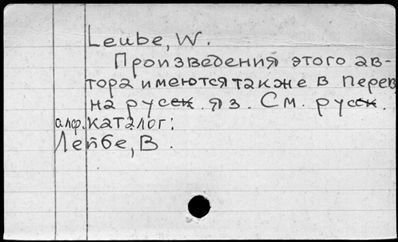 Leube, W.
Произведения этого ав-
тора имеются также в перев.
на русск. яз. См. русск.
алф. каталог:
Лейбе, В.